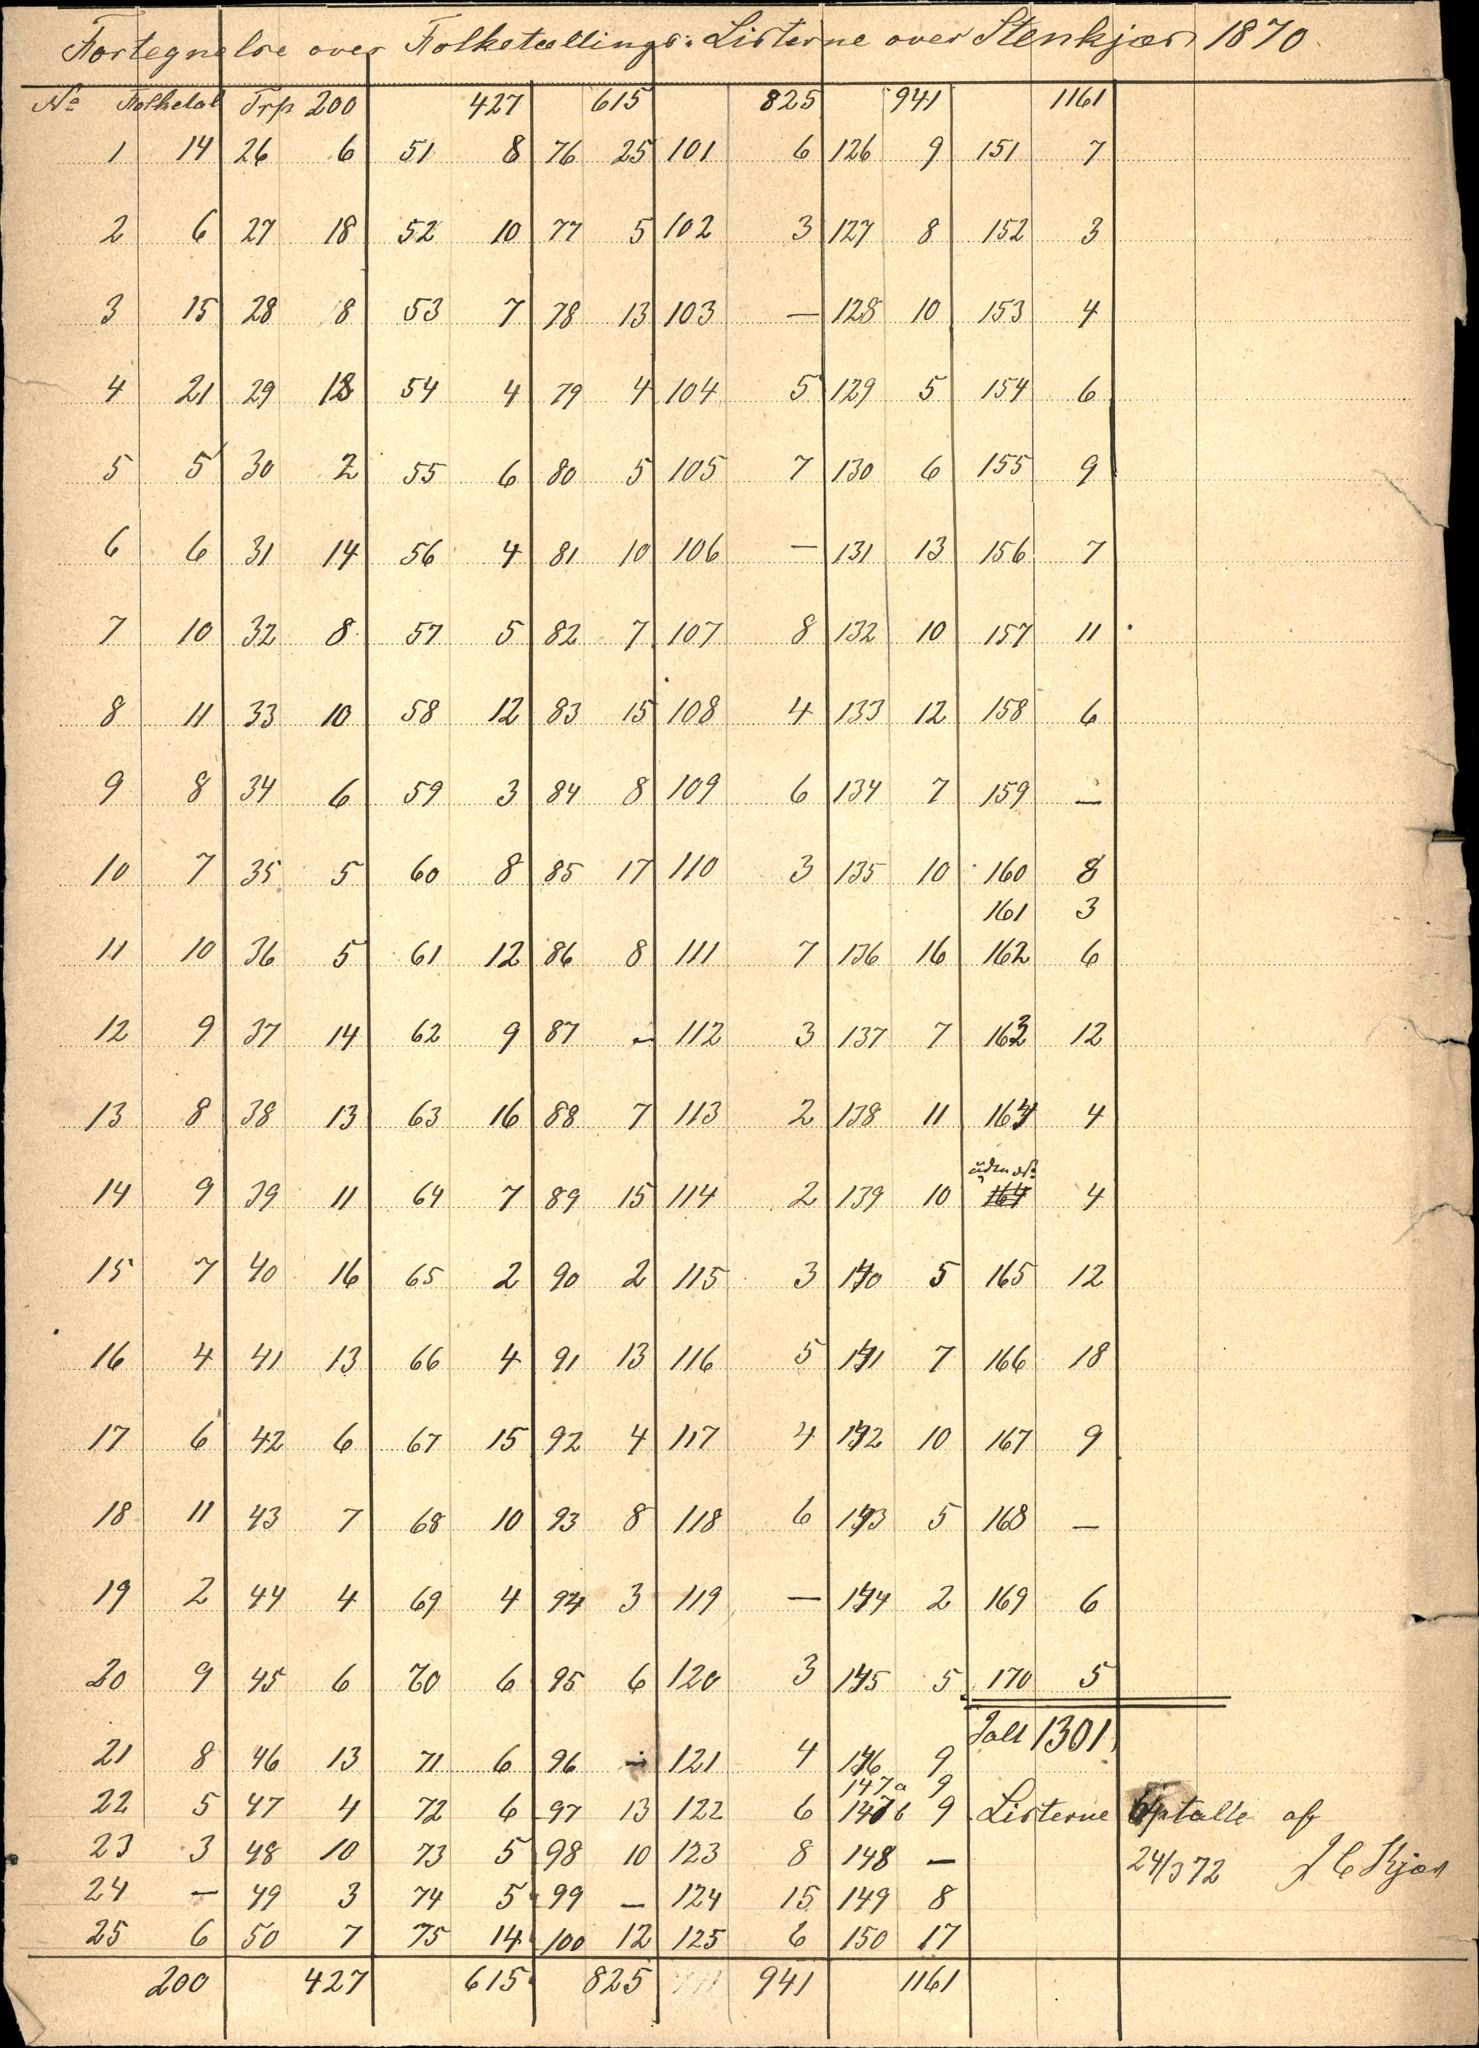 Fortegnelse over Folketællings-Listerne over Stenkjær 1870.
No Folketal Trp 200 427 615 825 941 1161
1 14 26 6 51 8 76 25 101 6 126 9 151 7
2 6 27 18 52 10 77 5 102 3 127 8 152 3
3 15 28 8 53 7 78 13 103 — 128 10 153 4
4 21 29 18 54 4 79 4 104 5 129 5 154 6
5 5 30 2 55 6 80 5 105 7 130 6 155 9
6 6 31 14 56 4 81 10 106 — 131 13 156 7
7 10 32 8 57 5 82 7 107 8 132 10 157 11
8 11 33 10 58 12 83 15 108 4 133 12 158 6
9 8 34 6 59 3 84 8 109 6 134 7 159 —
10 7 35 5 60 8 85 17 110 3 135 10 160 8
161 3
11 10 36 5 61 12 86 8 111 7 136 16 162 6
12 9 37 14 62 9 87 — 112 3 137 7 163 12
13 8 38 13 63 16 88 7 113 2 138 11 164 4
uden No
14 9 39 11 64 7 89 15 114 2 139 10 164 4
15 7 40 16 65 2 90 2 115 3 140 5 165 12
16 4 41 13 66 4 91 13 116 5 141 7 166 18
17 6 42 6 67 15 92 4 117 4 142 10 167 9
18 11 43 7 68 10 93 8 118 6 143 5 168 —
19 2 44 4 69 4 94 3 119 — 144 2 169 6
20 9 45 6 70 6 95 6 120 3 145 5 170 5
Ialt 1301
21 8 46 13 71 6 96 — 121 4 146 9
147a 9
22 5 47 4 72 6 97 13 122 6 147b 9 Listerne optalte af
23 3 48 10 73 5 98 10 123 8 148 — 24/3 72 J C Kjær
24 — 49 3 74 5 99 — 124 15 149 8
25 6 50 7 75 14 100 12 125 6 150 17
200 427 615 825 941 1161